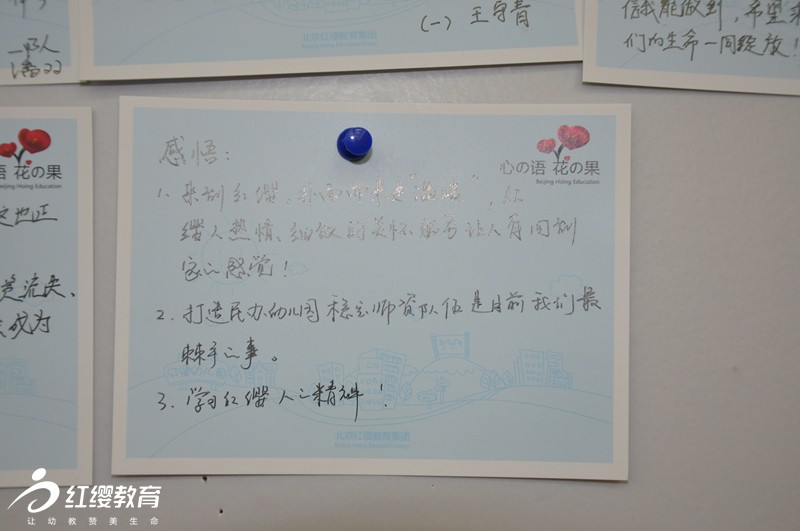 (一) 王守青
北京红缨教育集团
信我能做到，希望
们的生命一同绽放！
语 花の果
Beijing Hoing Education
心の语 花の果
Beijing Hoing Education
感悟：
1、来到红缨，
缨人热情、细致的关怀 让人有回到
家的感觉！
2、打造民办幼儿园稳定师资队伍是目前我们最
棘手的事。
3、学习红缨人的精神！
流失、
成为
北京红缨教育集团
红缨教育
让幼教赞美生命